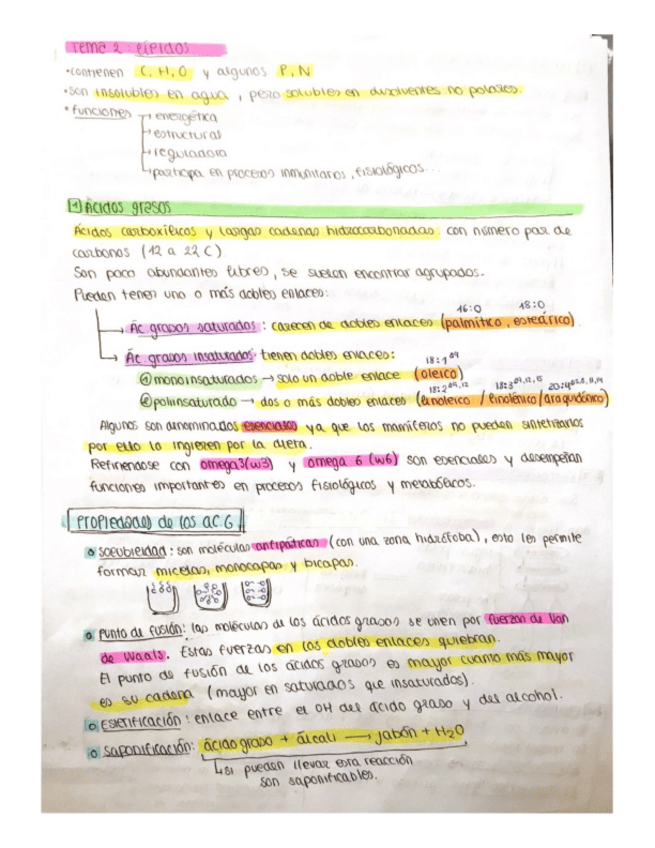 Tema 2: Lípidos
• contienen C, H, O y algunos P, N
• son insolubles en agua, pero solubles en disolventes no polares.
• funciones → energética
→ estructural
→ reguladora
→ participa en procesos inmunitarios, fisiológicos...
1 Ácidos grasos
Ácidos carboxílicos y largas cadenas hidrocarbonadas con número par de
carbonos (12 a 22 C)
Son poco abundantes libres, se suelen encontrar agrupados.
Pueden tener uno o más dobles enlaces:
16:0 18:0
→ Ác grasos saturados: carecen de dobles enlaces (palmítico, esteárico)
→ Ác grasos insaturados tienen dobles enlaces:
18:1 Δ9
① monoinsaturados → solo un doble enlace (oleico)
18:2 Δ9,12 18:3 Δ9,12,15 20:4 Δ5,8,11,14
② poliinsaturado → dos o más dobles enlaces (linoleico / linolénico / araquidónico)
Algunos son denominados esenciales ya que los mamíferos no pueden sintetizarlos
por ello lo ingieren por la dieta.
Refiriendose con omega 3 (w3) y omega 6 (w6) son esenciales y desempeñan
funciones importantes en procesos fisiológicos y metabólicos.
Propiedades de los AC G
• solubilidad: son moléculas antipáticas (con una zona hidrófoba), esto les permite
formar micelas, monocapas y bicapas.
• Punto de fusión: las moléculas de los ácidos grasos se unen por fuerzas de Van
de Waals. Estas fuerzas en los dobles enlaces quiebran.
El punto de fusión de los ácidos grasos es mayor cuanto más mayor
es su cadena (mayor en saturados que insaturados).
• Esterificación: enlace entre el OH del ácido graso y del alcohol.
• Saponificación: ácido graso + álcali → jabón + H2O
↳ si pueden llevar esta reacción
son saponificables.